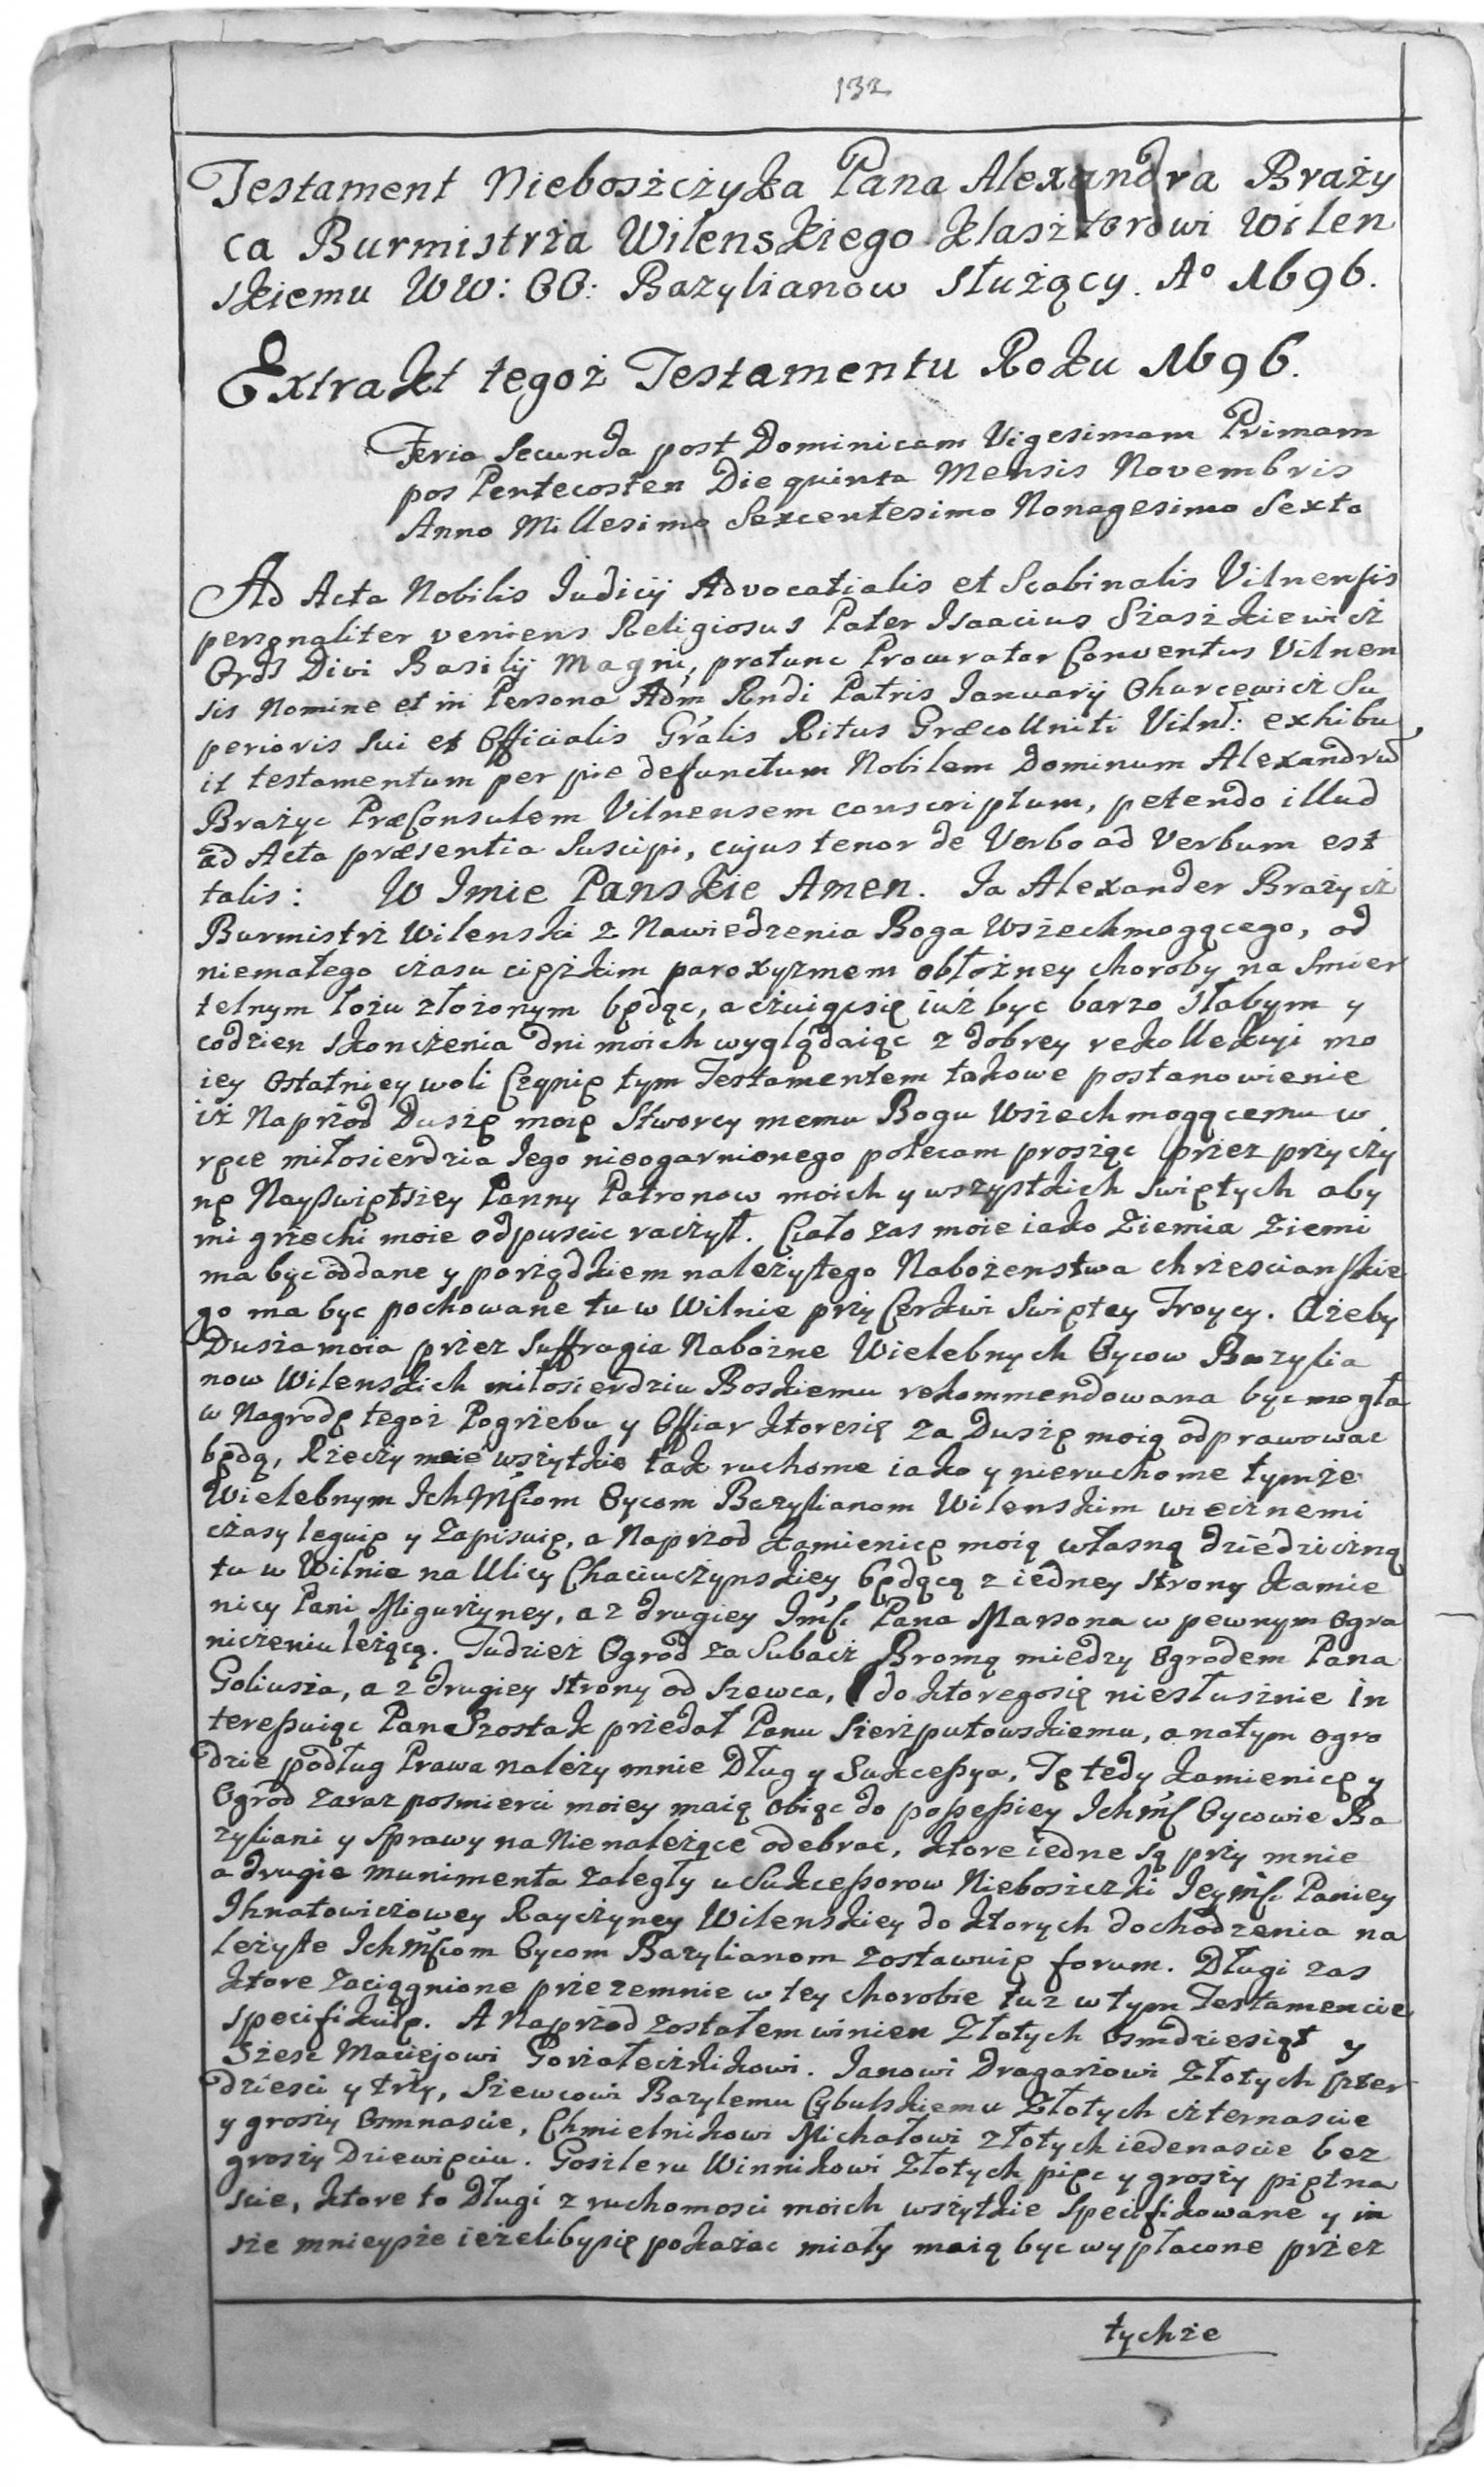 132
Testament Nieboszczyka Pana Alexandra Braży
ca Burmistrza Wilenskiego Klasztorowi Wilen
skiemu WW: OO: Bazylianow służący. Aº 1696.
Extrakt tegoż Testamentu Roku 1696.
Feria Secunda post Dominicam Vigesimam Primam
pos Pentecosten Die quinta Mensis Novembris
Anno Millesimo Sexcentesimo Nonagesimo Sexto
Ad Acta Nobilis Iudicij Advocatialis et Scabinalis Vilnensis
personaliter veniens Religiosus Pater Isaacius Szaszkiewicz
Ords Divi Basilij Magni, protunc Procurator Conventus Vilnen
sis Nomine et in Persona Adm Rndi Patris Ianuarij Ohurcewicz Su
perioris sui et Officialis Gralis Ritus Græco Uniti Viln: exhibu
it testamentum per pie defunctum Nobilem Dominum Alexandrū
Brażyc PræConsulem Vilnensem conscriptum, petendo illud
ad Acta præsentia Suscipi, cujus tenor de Verbo ad Verbum est
talis: W Imie Panskie Amen. Ia Alexander Brażycz
Burmistrz Wilenski z Nawiedzenia Boga Wszechmogącego, od
niemałego czasu cięzkim paroxyzmem obłożney choroby na Smier
telnym łożu złożonym będąc, a czuiącsię iuż byc barzo słabym y
codzien skonczenia dni moich wyglądaiąc z dobrey rekollekcyi mo
iey Ostatniey woli Czynię tym Testamentem takowe postanowienie
iż Naprzod Duszę moię Stworcy memu Bogu Wszechmogącemu w
ręce miłosierdzia Iego nieogarnionego polecam prosząc przez przyczy
nę Nayświętszey Panny Patronow moich y wszystkich Swiętych aby
mi grzechi moie odpuscic raczył. Ciało zas moie iako Ziemia Ziemi
ma byc oddane y porządkiem należytego Nabożenstwa chrzescianskie
go ma byc pochowane tu w Wilnie przy Cerkwi Swiętey Troycy. Ażeby
Dusza moia przez Suffragia Nabożne Wielebnych Oycow Bazylia
now Wilenskich miłosierdziu Boskiemu rekommendowana byc mogła
w Nagrodę tegoż Pogrzebu y Offiar ktoresię za Duszę moią odprawowac
będą, Rzeczy moie wszytkie tak ruchome iako y nieruchome tymże
Wielebnym Ichmściom Oycom Bazylianom Wilenskim wiecznemi
czasy leguię y zapisuię, a Naprzod kamienicę moią własną dziedziczną
tu w Wilnie na Ulicy Chaciuczynskiey będącą z iedney strony kamie
nicy Pani Migurzyney, a z drugiey Imć Pana Marsona w pewnym Ogra
niczeniu leżącą. Tudziez Ogrod za Subacz Bromą miedzy Ogrodem Pana
Goliusza, a z drugiey strony od Szewca, do ktoregosię niesłusznie in
teressuiąc Pan Szostak przedał Panu Sierzputowskiemu, a natym ogro
dzie podług Prawa należy mnie Dług y Sukcessya, Tę tedy kamienicę y
Ogrod zaraz posmierci moiey maią obiąc do possessiey Ichmść Oycowie Ba
zyliani y sprawy na Nie należące odebrac, ktore iedne są przy mnie
a drugie munimenta zaległy u Sukcessorow Nieboszczki Ieymść Paniey
Ihnatowiczowey Rayczyney Wilenskiey do ktorych dochodzenia na
leżyte Ichmściom Oycom Bazylianom zostawuię forum. Długi zas
ktore zaciągnione przezemnie w tey chorobie tuz w tym Testamencie
specifikuię. A Naprzod zostałem winien Złotych osmdziesiąt y
szesc Maciejowi Gorzałecznikowi. Ianowi Dragarzowi Złotych szter
dziesci y trzy, Szewcowi Bazylemu Cybulskiemu Złotych czternascie
y groszy Osmnascie, Chmielnikowi Michałowi złotych iedenascie bez
groszy Dziewięciu. Goszleru Winnikowi Złotych pięc y groszy piętna
scie, ktore to Długi z ruchomosci moich wszytkie specifikowane y in
sze mnieysze ieżelibysię pokazac miały maią byc wypłacone przez
tychże